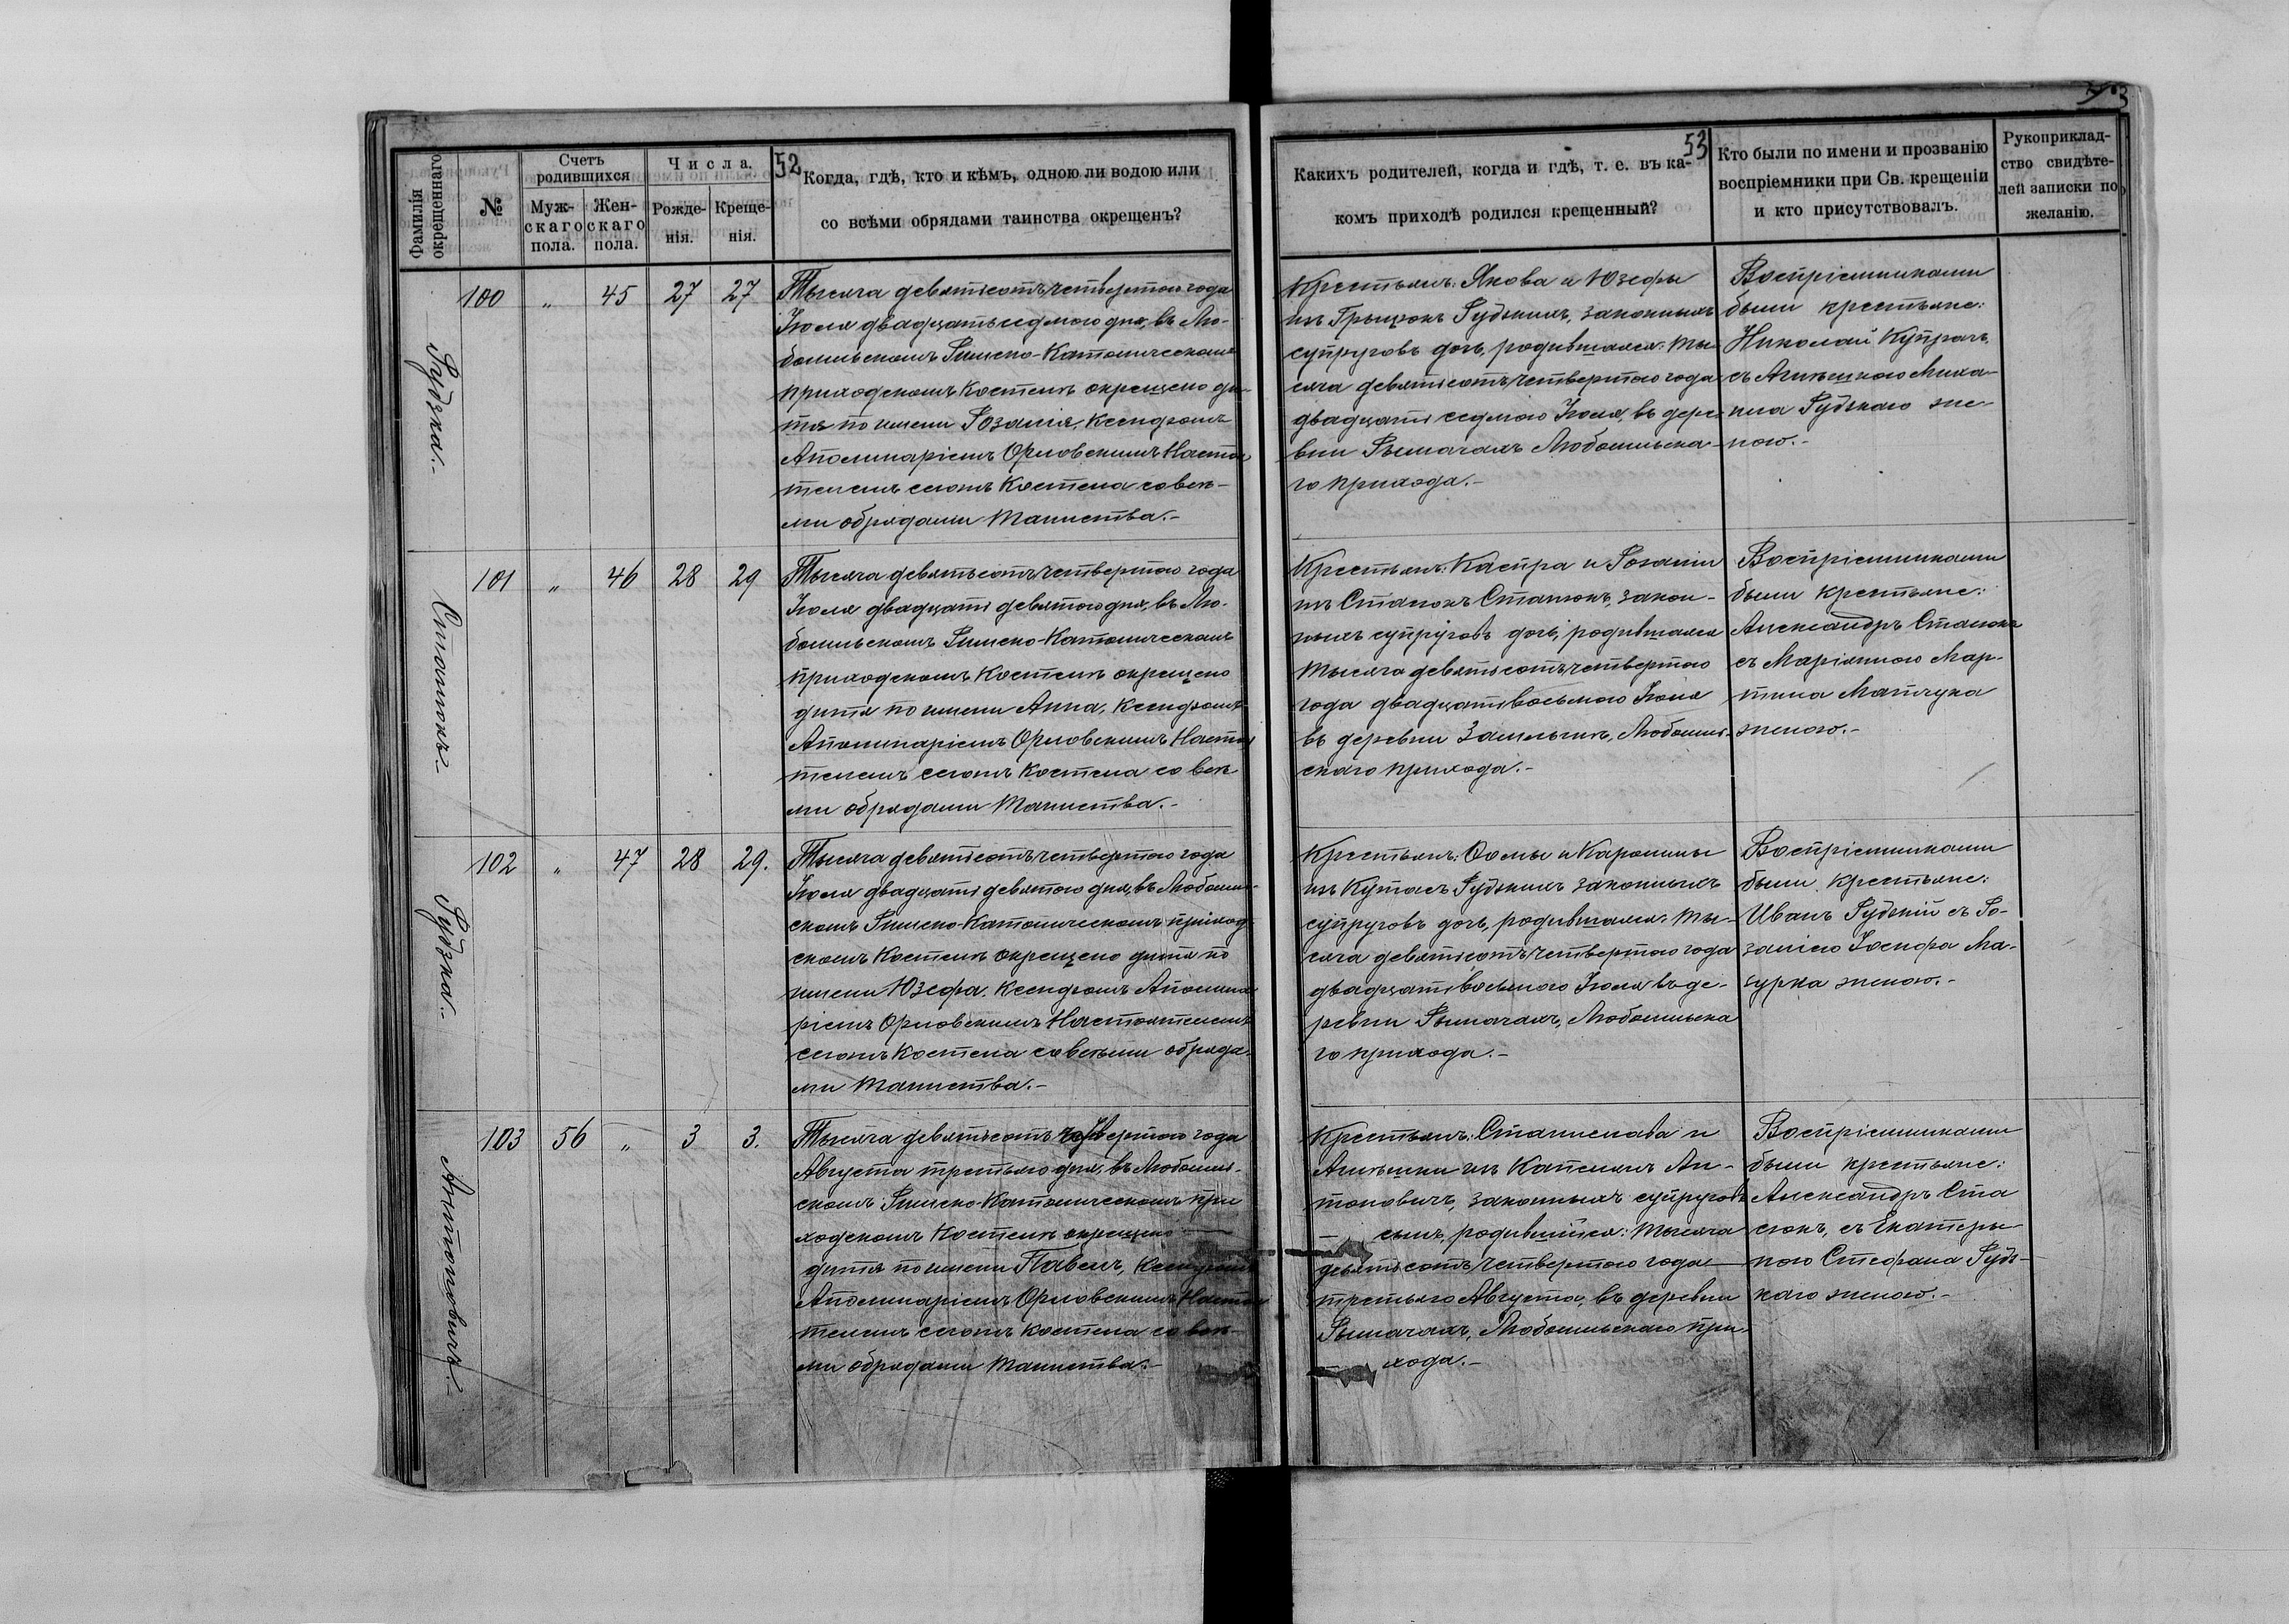 52
53
Фамилія
окрещеннаго
№
Счетъ
родившихся
Муж-
скаго
пола.
Жен-
скаго
пола.
Числа.
Рожде-
нія.
Креще-
нія.
Когда, гдѣ, кто и кѣмъ, одною ли водою или
со всѣми обрядами таинства окрещенъ?
Какихъ родителей, когда и гдѣ, т. е. въ ка-
комъ приходѣ родился крещенный?
Кто были по имени и прозванію
воспріемники при Св. крещеніи
и кто присутствовалъ.
Рукоприклад-
ство свидѣте-
лей записки по
желанію.
Рудзка.-
100 " 45 27 27
Тысяча девятьсотъ четвертого года
Іюля двадцать седмого дня, въ Лю-
бомльскомъ Римско-Католическомъ
приходскомъ Костелѣ окрещено ди-
тя по имени Розалія, Ксендзомъ
Аполинаріемъ Орловскимъ Настоя
телемъ сегожъ Костела со всѣ-
ми обрядами Таинства.-
Крестьянъ: Якова и Юзефы
изъ Грыцюкъ Рудзкихъ, законныхъ
супруговъ дочь, родившаяся: ты-
сяча девятьсотъ четвертого года
двадцать седмого Іюля, въ дере-
вни Рымачахъ Любомльска-
го прихода.-
Воспріемниками
были крестьяне:
Николай Купрачъ,
съ Агнѣшкою Миха-
ила Рудзкаго же-
ною.-
Стасюкъ.-
101 " 46 28 29
Тысяча девятьсотъ четвертого года
Іюля двадцать девятого дня, въ Лю-
бомльскомъ Римско-Католическомъ
приходскомъ Костелѣ окрещено
дитя по имени Анна, Ксендзомъ
Аполинаріемъ Орловскимъ Настоя
телемъ сегожъ Костела со всѣ
ми обрядами Таинства.-
Крестьянъ: Каспра и Розаліи
изъ Стасюкъ Стасюкъ, закон-
ныхъ супруговъ дочь, родившаяся
тысяча девятьсотъ четвертого
года двадцать восьмого Іюля
въ деревни Любомль-
скаго прихода.-
Воспріемниками
были крестьяне:
Александръ Стасюкъ
съ Маріянною Мар-
тина Матчука
женою.-
Рудзка.-
102 " 47 28 29.
Тысяча девятьсотъ четвертого года
Іюля двадцать девятого дня, въ Любомль-
скомъ Римско-Католическомъ приход-
скомъ Костелѣ окрещено дитя по
имени Юзефа, Ксендзомъ Аполина-
ріемъ Орловскимъ Настоятелемъ
сегожъ Костела со всѣми обряда-
ми Таинства.-
Крестьянъ: Ѳомы и Каролины
изъ Рудзкихъ законныхъ
супруговъ дочь, родившаяся: ты-
сяча девятьсотъ четвертого года
двадцать восьмого Іюля въ де-
ревни Рымачахъ, Любомльска
го прихода.-
Воспріемниками
были крестьяне:
Иванъ Рудзкій съ Ро-
заліею Іосифа Ма-
зурка женою.-
Антоновичъ.-
103 56 " 3 3.
Тысяча девятьсотъ четвертого года
Августа третьяго дня, въ Любомль-
скомъ Римско-Католическомъ при
ходскомъ Костелѣ окрещено
дитя по имени Павелъ, Ксендзомъ
Аполинаріемъ Орловскимъ Настоя
телемъ сегожъ Костела со всѣ-
ми обрядами Таинства.-
Крестьянъ: Станислава и
Агнѣшки изъ Ан-
тоновичъ, законныхъ супруговъ
сынъ, родившійся: тысяча
девятьсотъ четвертого года
третьяго Августа, въ деревни
Рымачахъ, Любомльскаго при-
хода.-
Воспріемниками
были крестьяне:
Александръ Ста
сюкъ, съ Екатеры-
ною Стефана Рудз-
каго женою.-